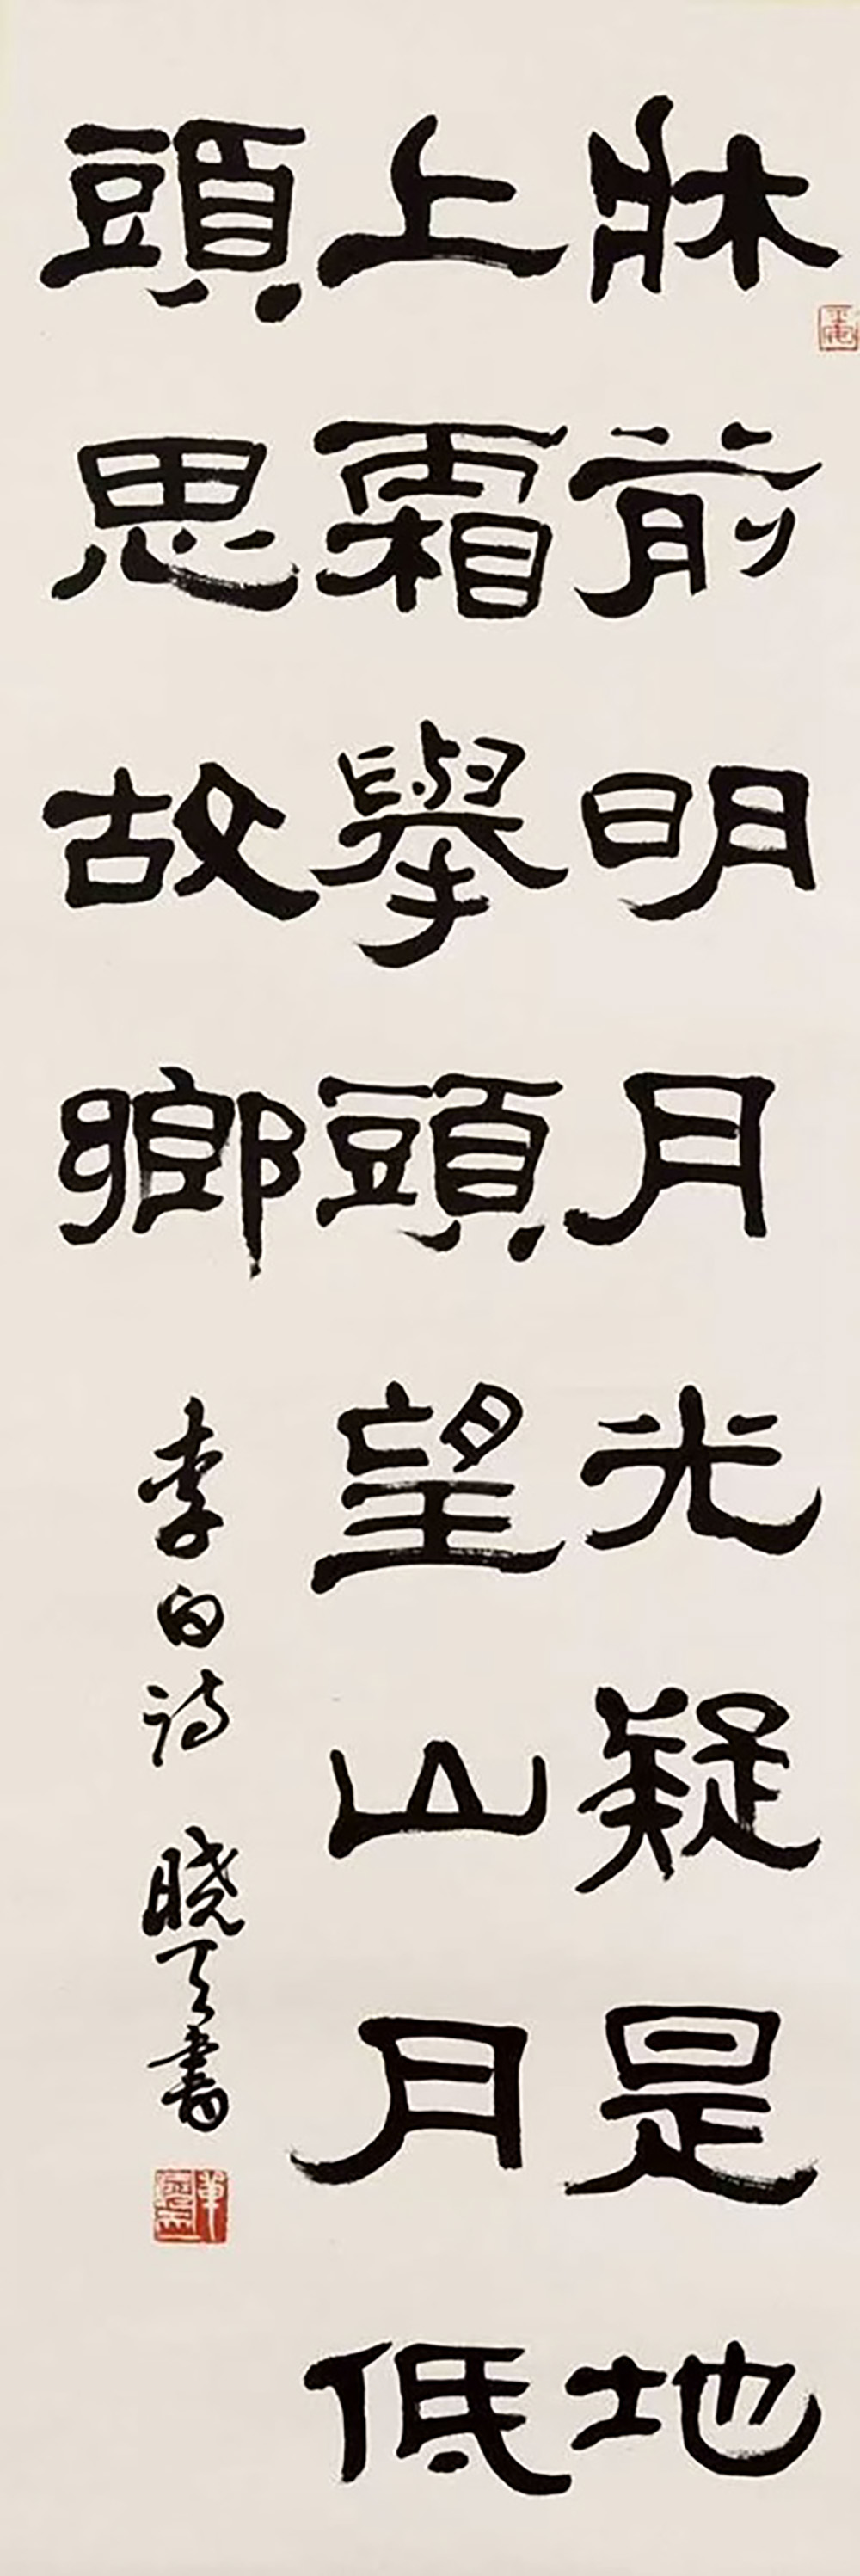 牀前明月光疑是地
上霜舉頭望山月低
頭思故鄉
李白詩 曉天書